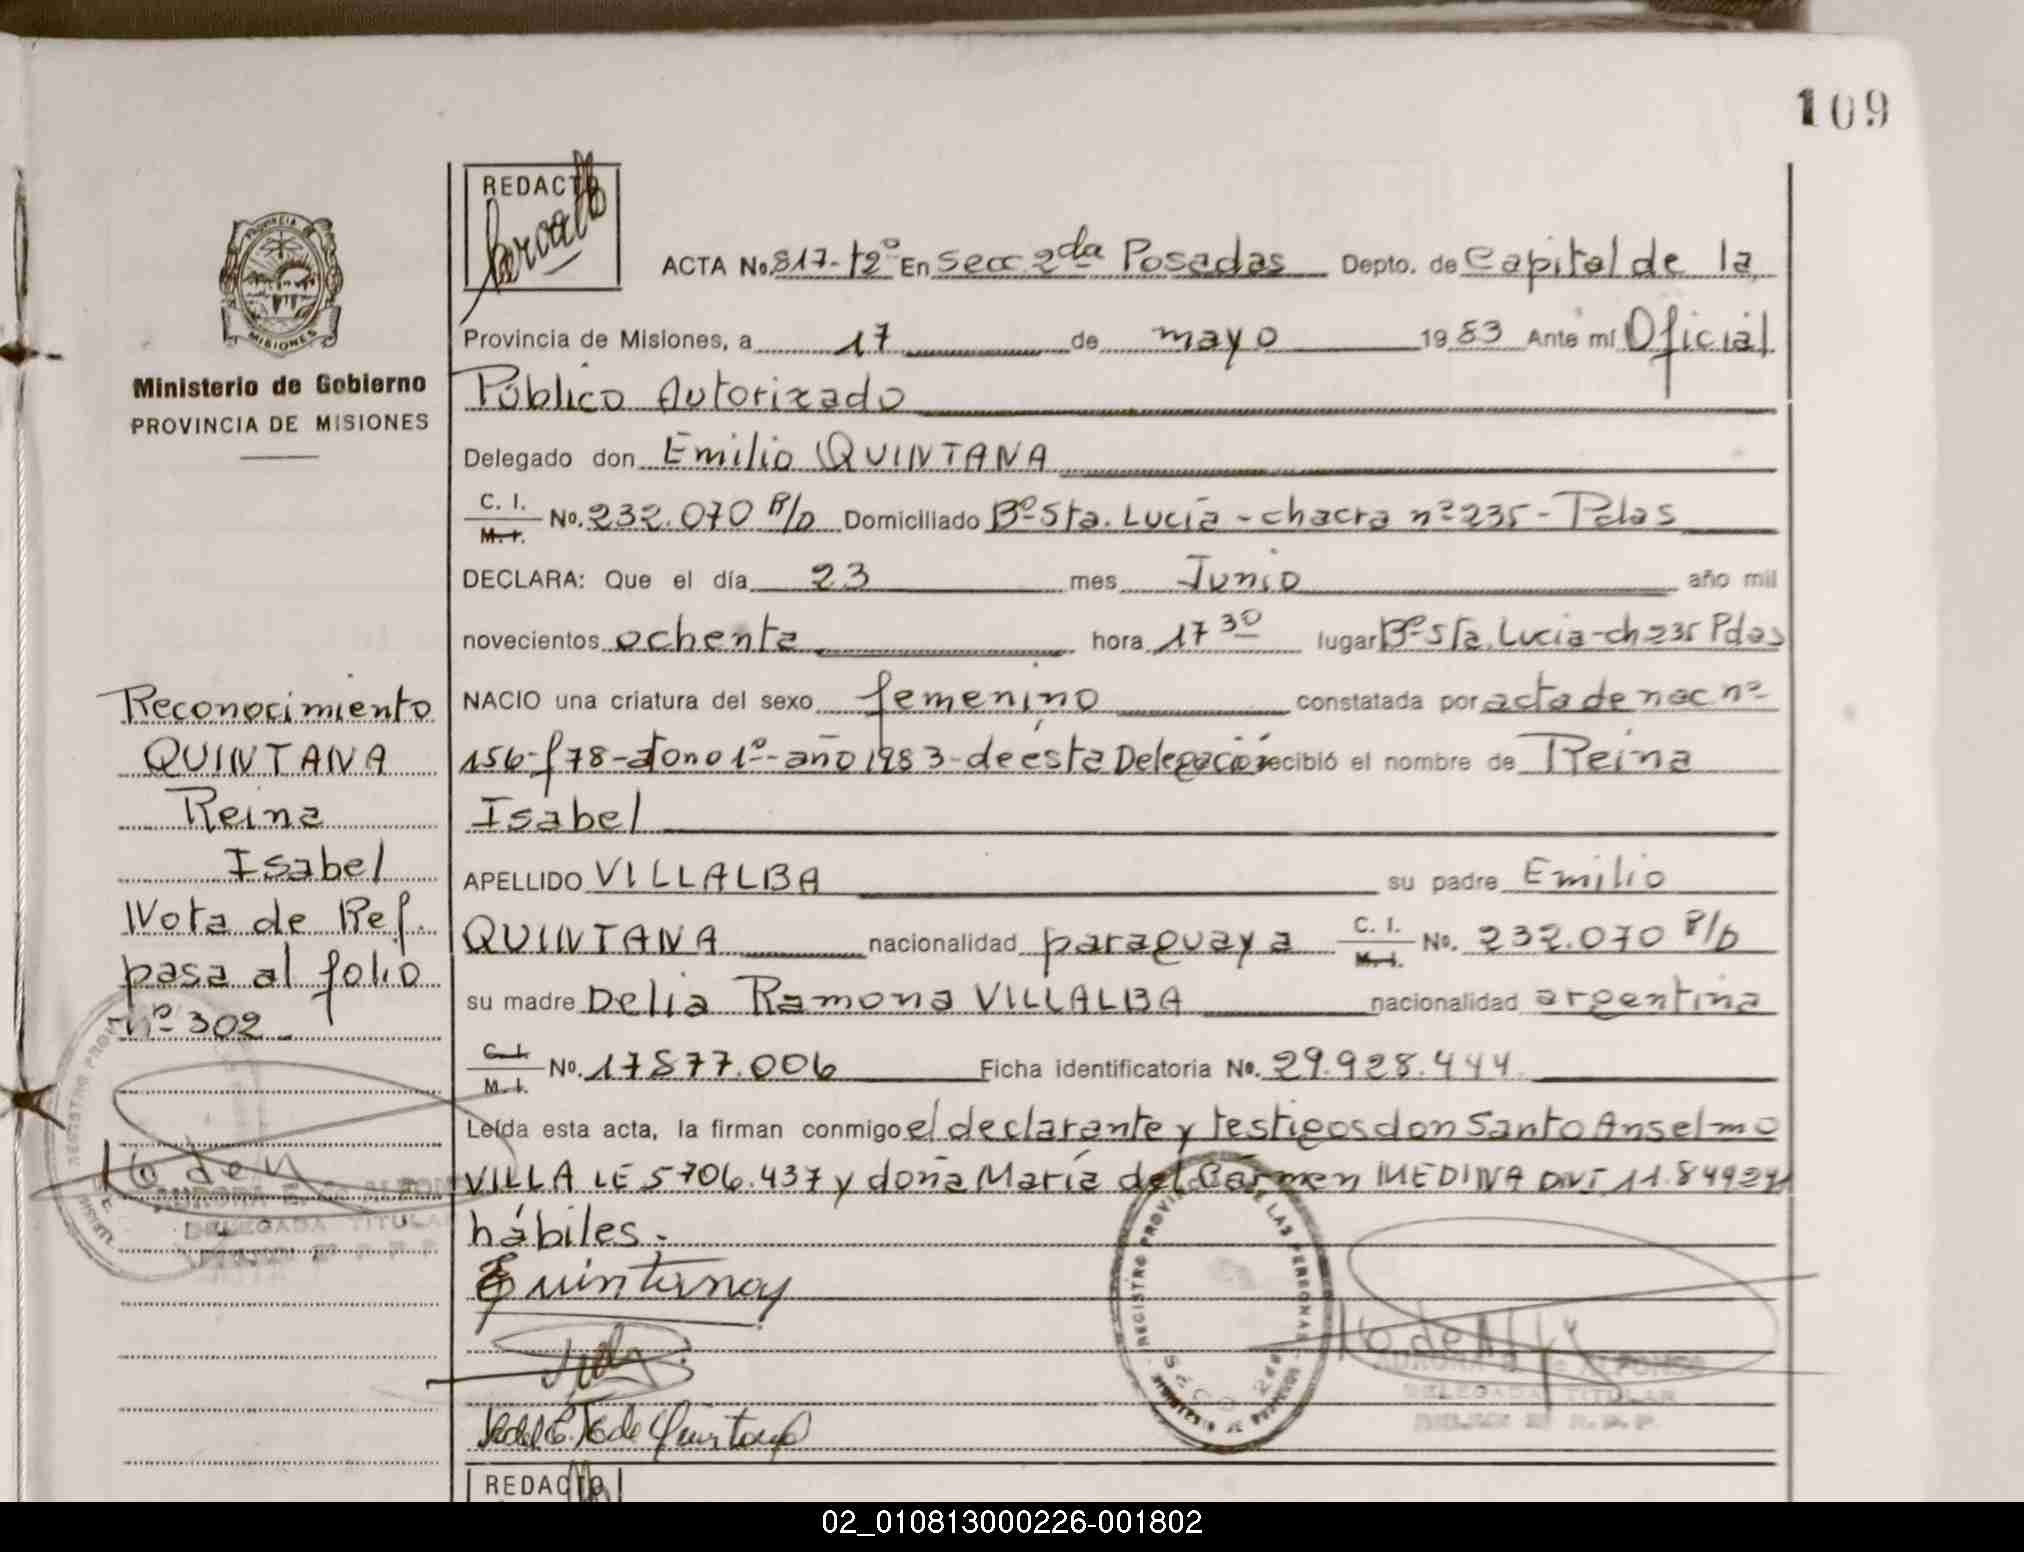 109
REDACTO
ACTA No. 817-tº2 En Secc 2da Posadas Depto. de Capital de la
Provincia de Misiones, a 17 de mayo 1983 Ante mí Oficial
PROVINCIA
MISIONES
Ministerio de Gobierno
PROVINCIA DE MISIONES
Público Autorizado
Delegado don Emilio QUINTANA
C. I.
M. I. No. 232.070 P/D Domiciliado Bº Sta. Lucía - chacra nº 235 - Pdas
DECLARA: Que el día 23 mes Junio año mil
novecientos ochenta hora 17 30 lugar Bº Sta. Lucia-ch 235 Pdas
NACIO una criatura del sexo femenino constatada por acta de nac nº
156-f 78-tomo 1º-año 1983-de ésta Delegación recibió el nombre de Reina
Isabel
APELLIDO VILLALBA su padre Emilio
QUINTANA nacionalidad paraguaya C. I.
M. I. No. 232.070 P/D
su madre Delia Ramona VILLALBA nacionalidad argentina
C. I.
M. I. No. 17877.006 Ficha identificatoria No. 29.928.444
Leída esta acta, la firman conmigo el declarante y testigos don Santo Anselmo
VILLA LE 5706.437 y doña María del Carmen MEDINA DNI 11.849271
hábiles.
Reconocimiento
QUINTANA
Reina
Isabel
Nota de Ref.
pasa al folio
nº 302
DELEGADA TITULAR
REGISTRO PROVINCIAL DE LAS PERSONAS
DELEGADA TITULAR
REDACTO
02_010813000226-001802